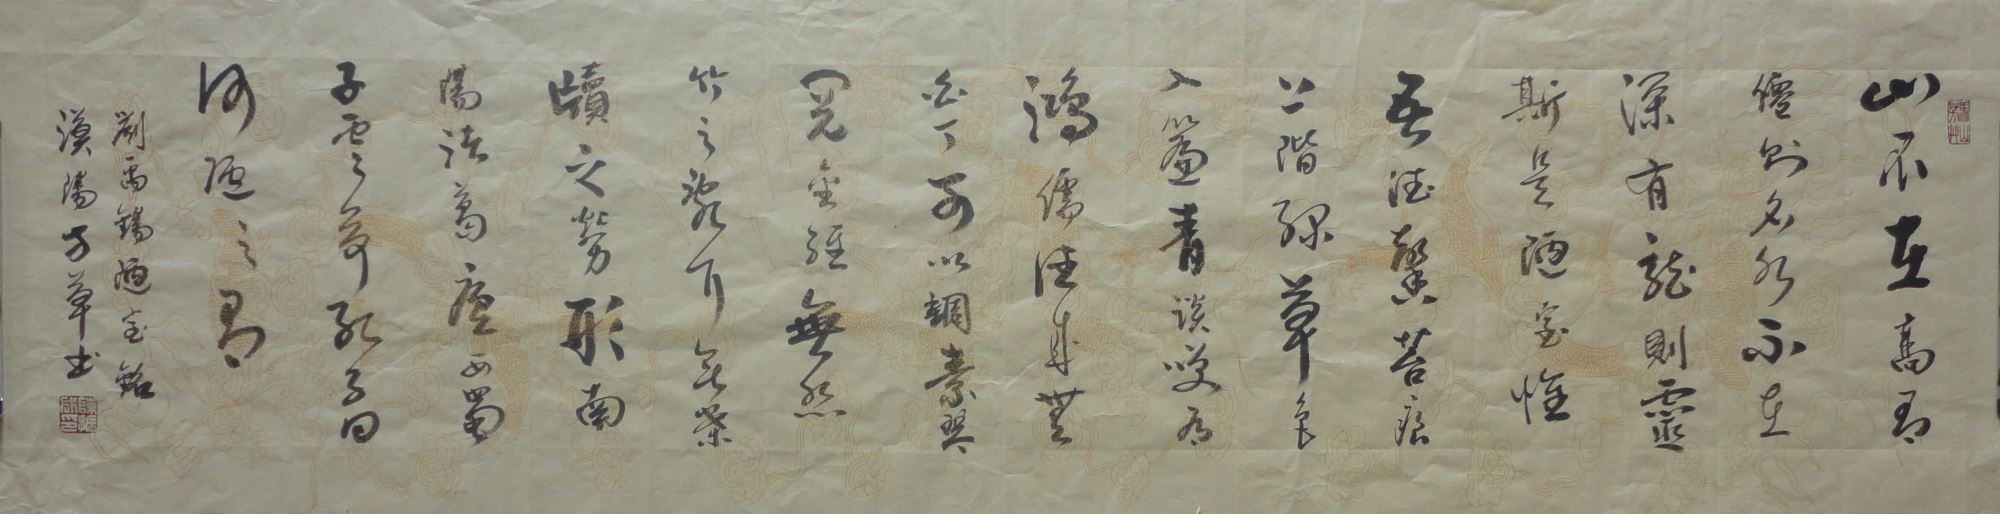 山不在高有
僊則名水不在
深有龍則靈
斯是陋室惟
吾德馨苔痕
上階綠草色
入簾青談咲有
鴻儒往來無
白丁可以調素琴
閱金經無絲
竹之亂耳無案
牘之勞形南
陽諸葛廬西蜀
子雲亭孔子曰
何陋之有
劉禹錫陋室銘
漢陽方草書